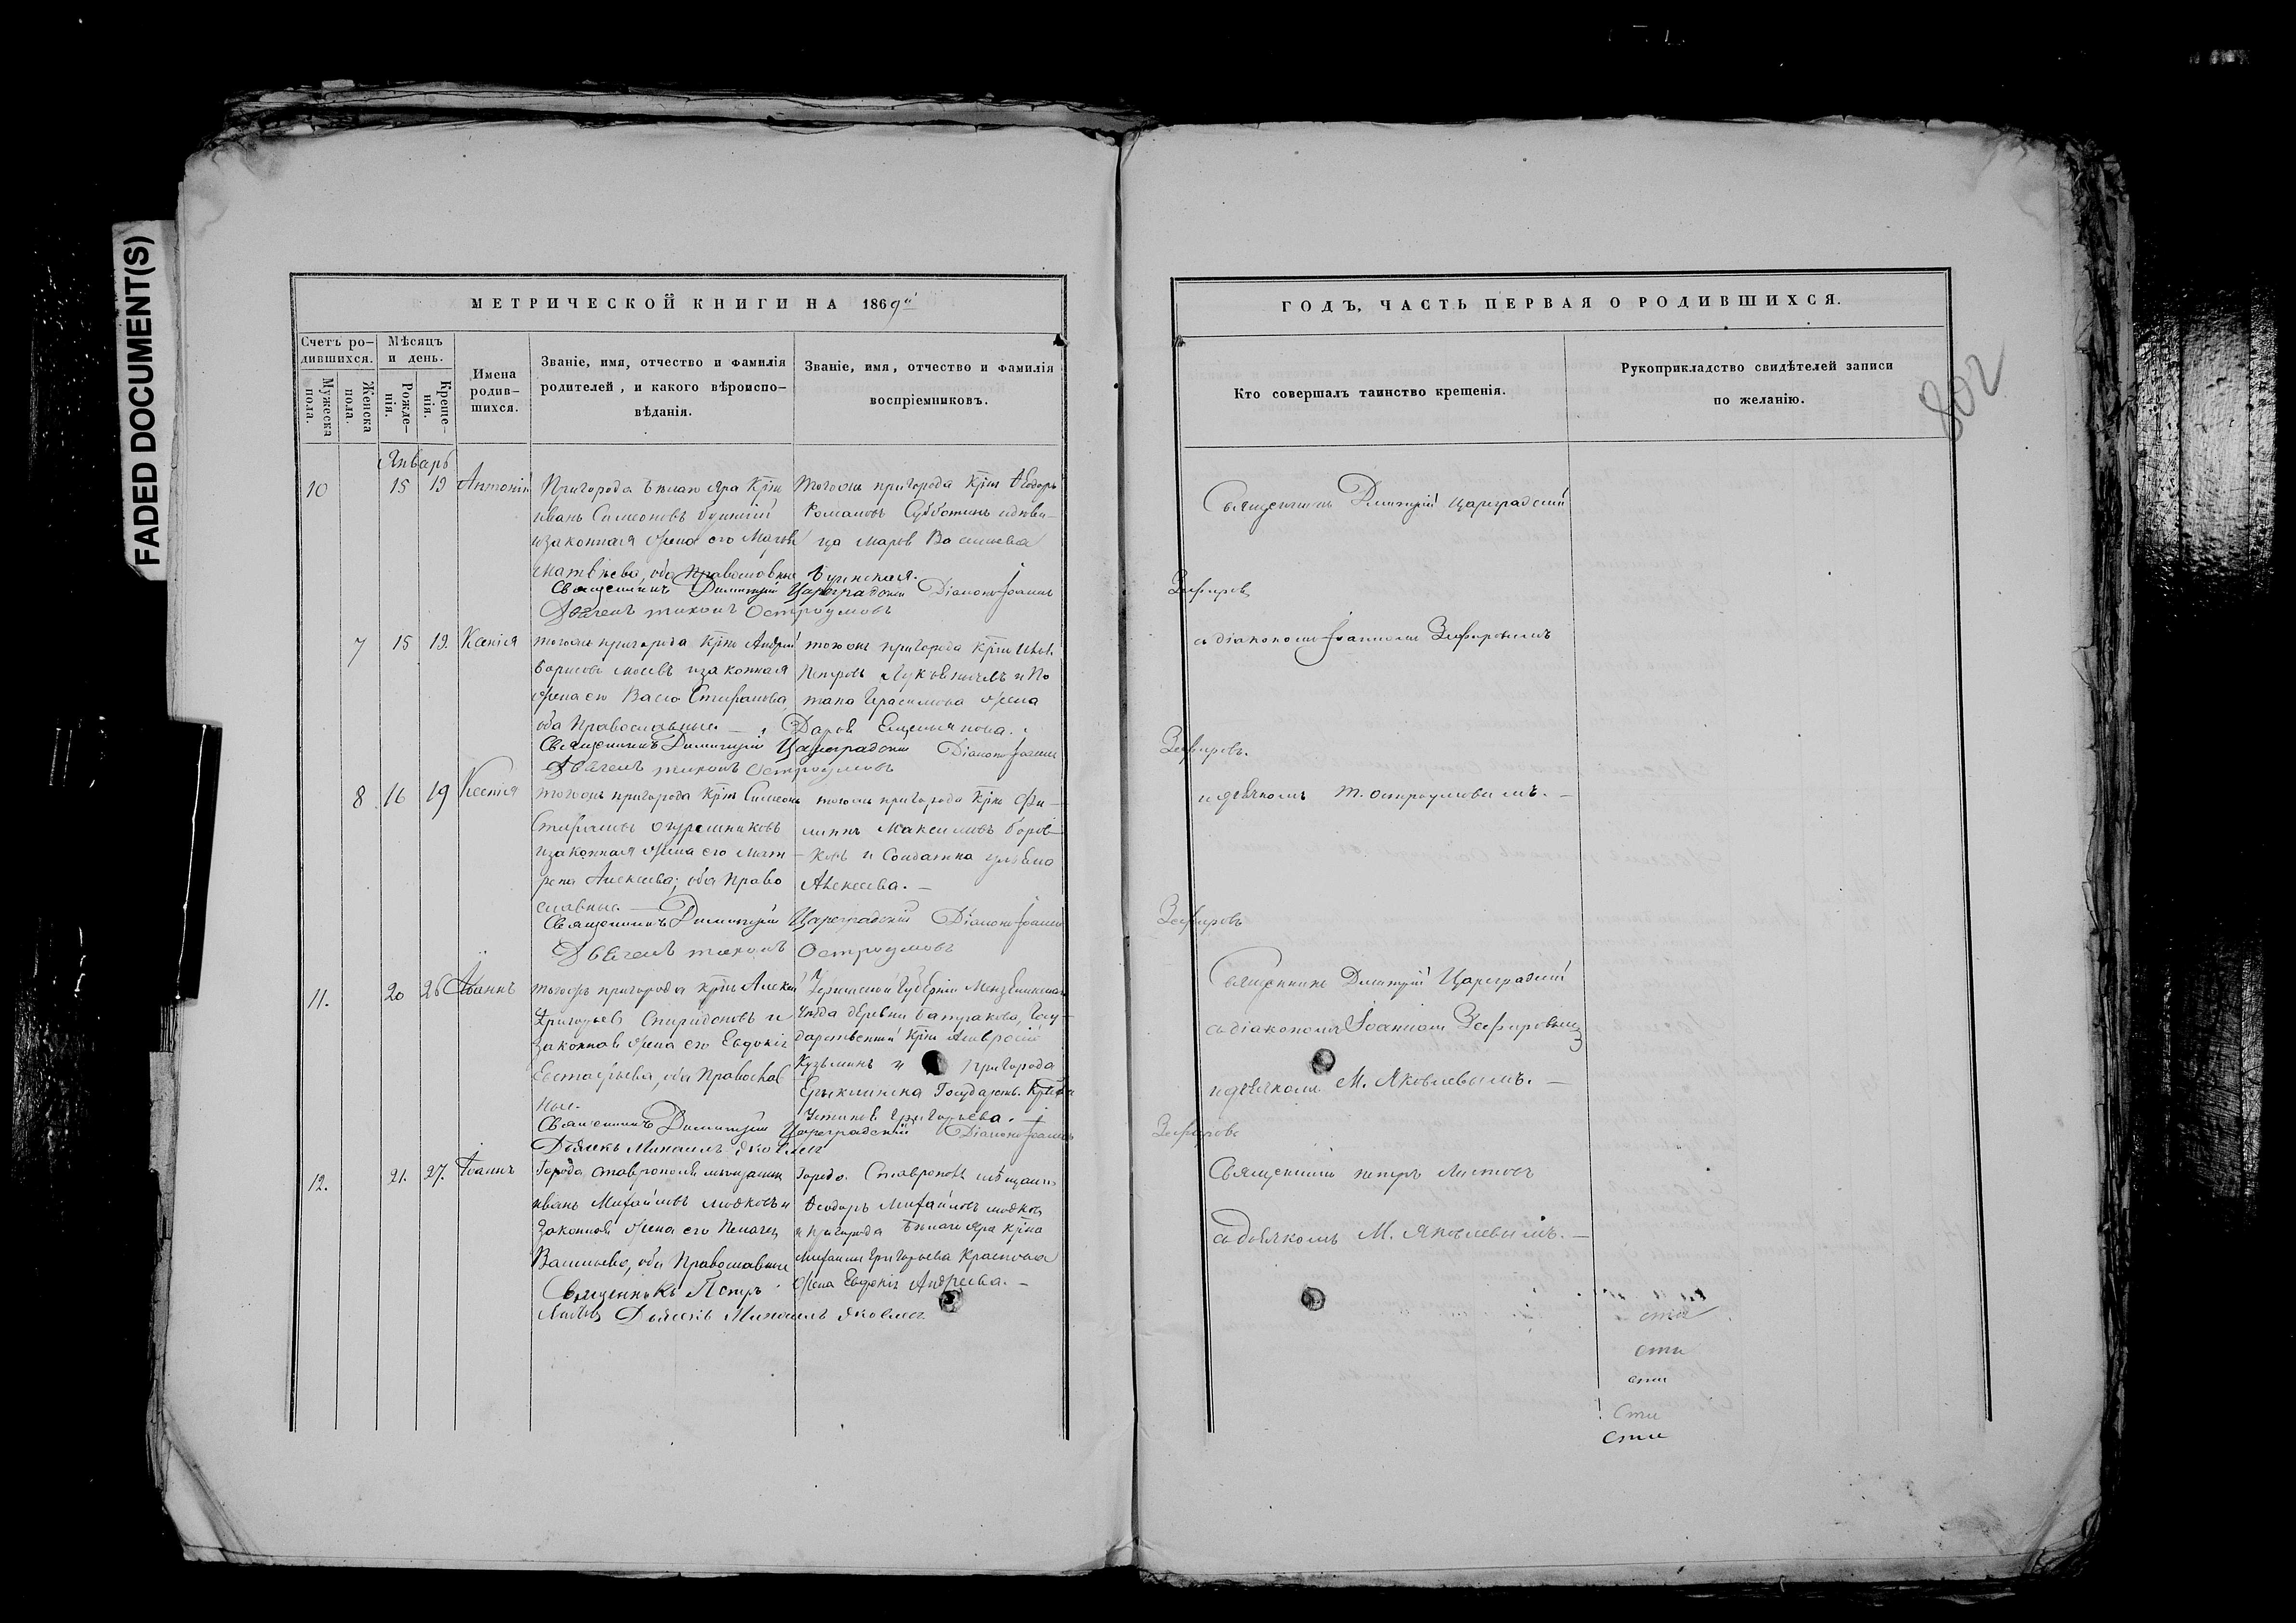 FADED DOCUMENT(S)
МЕТРИЧЕСКОЙ КНИГИ НА 1869й
Счетъ ро-
дившихся.
Мужеска пола.
Женска пола.
Мѣсяцъ
и день.
Рожде-
нія.
Креще-
нія.
Имена
родив-
шихся.
Званіе, имя, отчество и фамилія
родителей, и какого вѣроиспо-
вѣданія.
Званіе, имя, отчество и фамилія
воспріемниковъ.
Январь
10 15 19 Антоній
Пригорода Бѣлаго Яра Крт
Иванъ Симеоновъ
изаконная жена его
Матвѣева, оба Православные
Священникъ Димитрій Цареградскій Діаконъ Іоаннъ
Дьячекъ Тихонъ Остроумовъ
тогожъ пригорода Крт Ѳеодоръ
Романовъ Субботинъ
Васильева
7 15 19. Ксенія
тогожъ пригорода Крт Андрей
Борисовъ изаконная
жена его Васса Стефанова,
оба Православные
Священникъ Димитрій Цареградскій Діаконъ Іоаннъ
Дьячекъ Тихонъ Остроумовъ
тогожъ пригорода Крт
Петровъ и По
тапа Герасимова жена
Дарья Емельянова.
8 16 19 Ксенія
тогожъ пригорода Крт Симеонъ
Стефановъ Огурешниковъ
изаконная жена его Мат
рена Алексѣева, оба Право
славные
Священникъ Димитрій Цареградскій Діаконъ Іоаннъ
Дьячекъ Тихонъ Остроумовъ
тогожъ пригорода Крт Фи-
липпъ Максимовъ Боров-
ковъ и Солдатка
Алексеева.
11. 20 26 Іоаннъ
тогожъ пригорода Крт Алексѣй
Григорьевъ Спиридоновъ и
законная жена его Евдокія
Евстафьева, оба Православ
ные.
Священникъ Димитрій Цареградскій Діаконъ Іоаннъ
Дьячекъ Михаилъ Яковлевъ
Губерніи
уѣзда деревни Батракова, Госу-
дарственный Крт
Кузьминъ и Пригорода
Ерыклинска Государств. Крт
Устинья Григорьева.
12. 21. 27. Іоаннъ
Города Ставрополя мѣщанинъ
Иванъ Михайловъ и
законная жена его Пелагея
Васильева, оба Православные
Священникъ Петръ
Листовъ Дьячекъ Михаилъ Яковлевъ
Города Ставрополя мѣщанинъ
Ѳеодоръ Михайловъ
и пригорода Бѣлаго Яра Крта
Григорьева
жена Евдокія Андреева.
ГОДЪ, ЧАСТЬ ПЕРВАЯ О РОДИВШИХСЯ.
Кто совершалъ таинство крещенія.
Рукоприкладство свидѣтелей записи
по желанію.
802
Священникъ Димитрій Цареградскій
Зефировъ
съ діакономъ Іоанномъ Зефировымъ
Зефировъ.
и дьячкомъ Т. Остроумовымъ.
Зефировъ
Священникъ Дмитрій Цареградскій
съ діакономъ Іоанномъ Зефировымъ
и дьячкомъ М. Яковлевымъ.
Зефировъ
Священникъ Петръ Листовъ
съ дьячкомъ М. Яковлевымъ.
сти
сти
сти
сти
сти